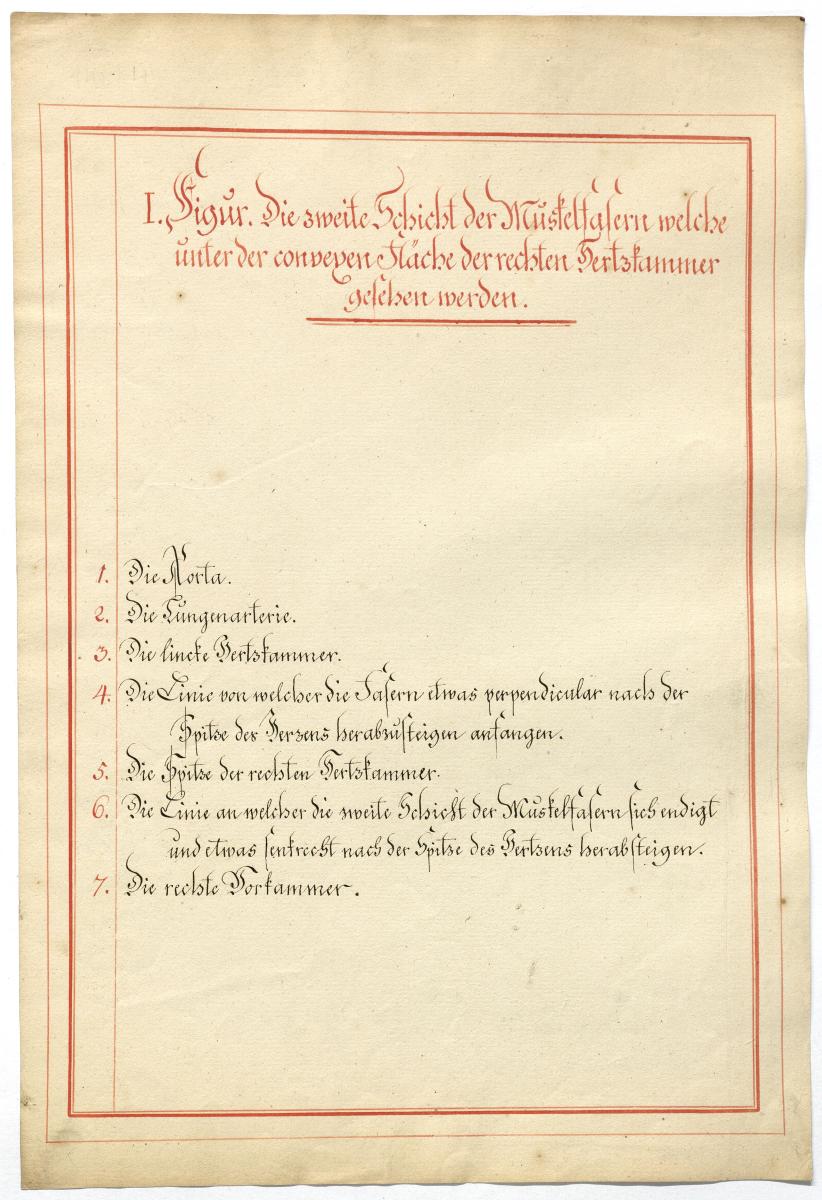 I. Figur. Die zweite Schicht der Muskelfasern welche
unter der convexen Fläche der rechten Hertzkammer
gesehen werden.
1. Die Aorta.
2. Die Lungenarterie.
3. Die lincke Hertzkammer.
4. Die Linie von welcher die Fasern etwas perpendicular nach der
Spitze des Herzens herabzusteigen anfangen.
5. Die Spitze der rechten Hertzkammer.
6. Die Linie an welcher die zweite Schicht der Muskelfasern sich endigt
und etwas senkrecht nach der Spitze des Hertzens herabsteigen.
7. Die rechte Vorkammer.